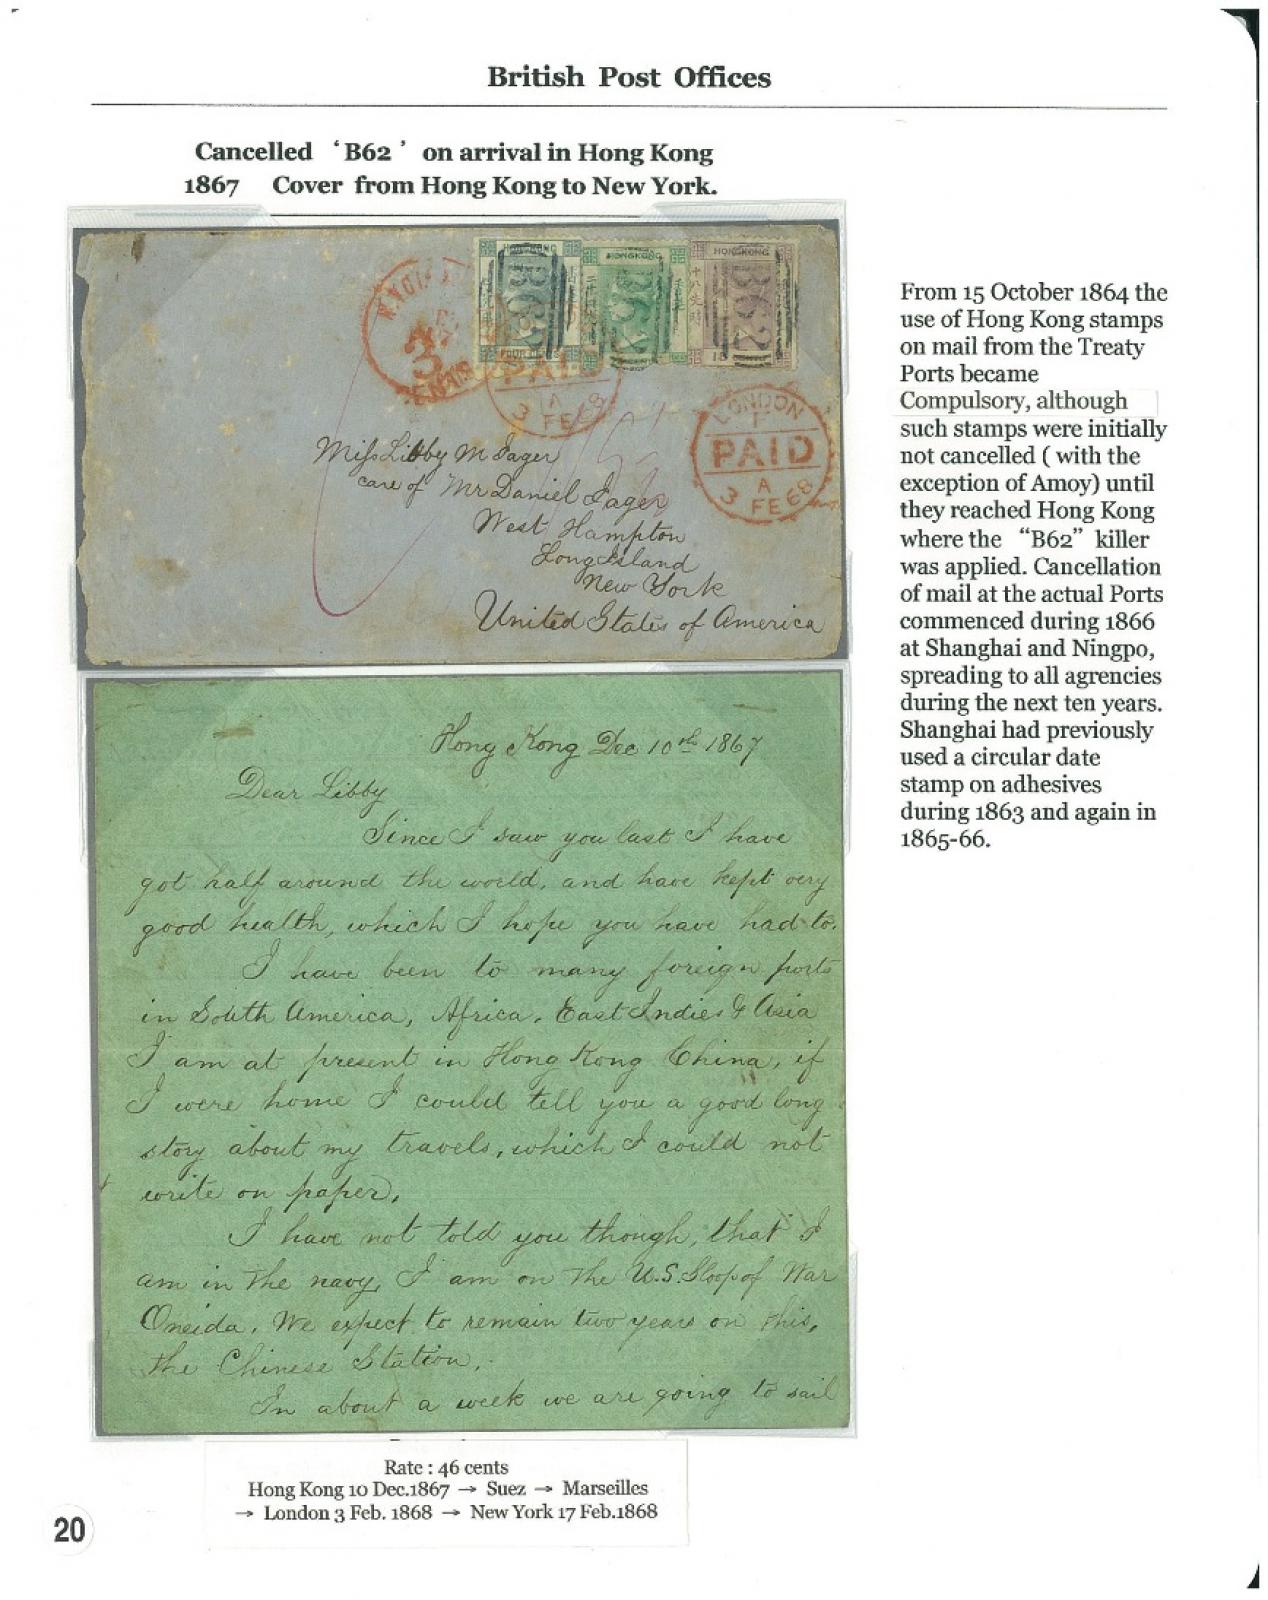 British Post Offices
Cancelled ‘ B62 ’ on arrival in Hong Kong
1867 Cover from Hong Kong to New York.
HONGKONG
HONGKONG
HONGKONG
B62
B62
B62
FOUR CENTS
十八先時
18
3
CENTS
PAID
A
3 FE 68
LONDON
F
PAID
A
3 FE 68
Miss Libby M Jager
care of Mr Daniel Jager
West Hampton
Long Island
New York
United States of America
Hong Kong Dec 10th 1867
Dear Libby
Since I saw you last I have
got half around the world, and have kept very
good health, which I hope you have had to.
I have been to many foreign ports
in South America, Africa, East Indies & Asia
I am at present in Hong Kong China, if
I were home I could tell you a good long
story about my travels, which I could not
write on paper.
I have not told you though, that I
am in the navy, I am on the U.S. Sloop of War
Oneida. We expect to remain two years on this,
the Chinese Station.
In about a week we are going to sail
From 15 October 1864 the
use of Hong Kong stamps
on mail from the Treaty
Ports became
Compulsory, although
such stamps were initially
not cancelled ( with the
exception of Amoy) until
they reached Hong Kong
where the “B62” killer
was applied. Cancellation
of mail at the actual Ports
commenced during 1866
at Shanghai and Ningpo,
spreading to all agrencies
during the next ten years.
Shanghai had previously
used a circular date
stamp on adhesives
during 1863 and again in
1865-66.
Rate : 46 cents
Hong Kong 10 Dec.1867 → Suez → Marseilles
→ London 3 Feb. 1868 → New York 17 Feb.1868
20